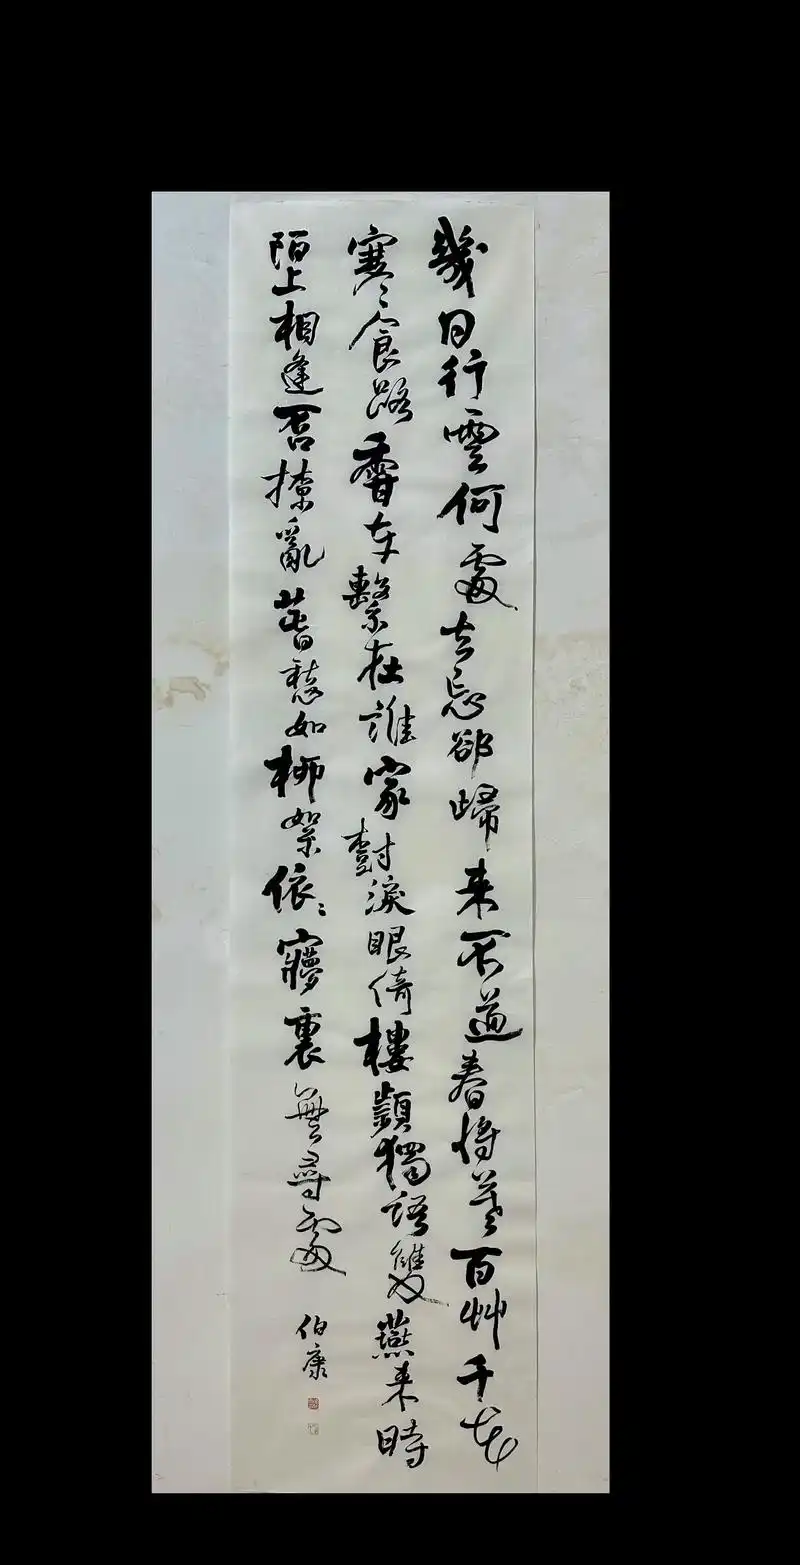 幾日行雲何處去忘卻歸来不道春將暮百艸千花
寒食路香車繫在誰家樹淚眼倚樓頻獨語雙燕来時
陌上相逢否撩亂萅愁如柳絮依〻夢裏無尋處
伯康